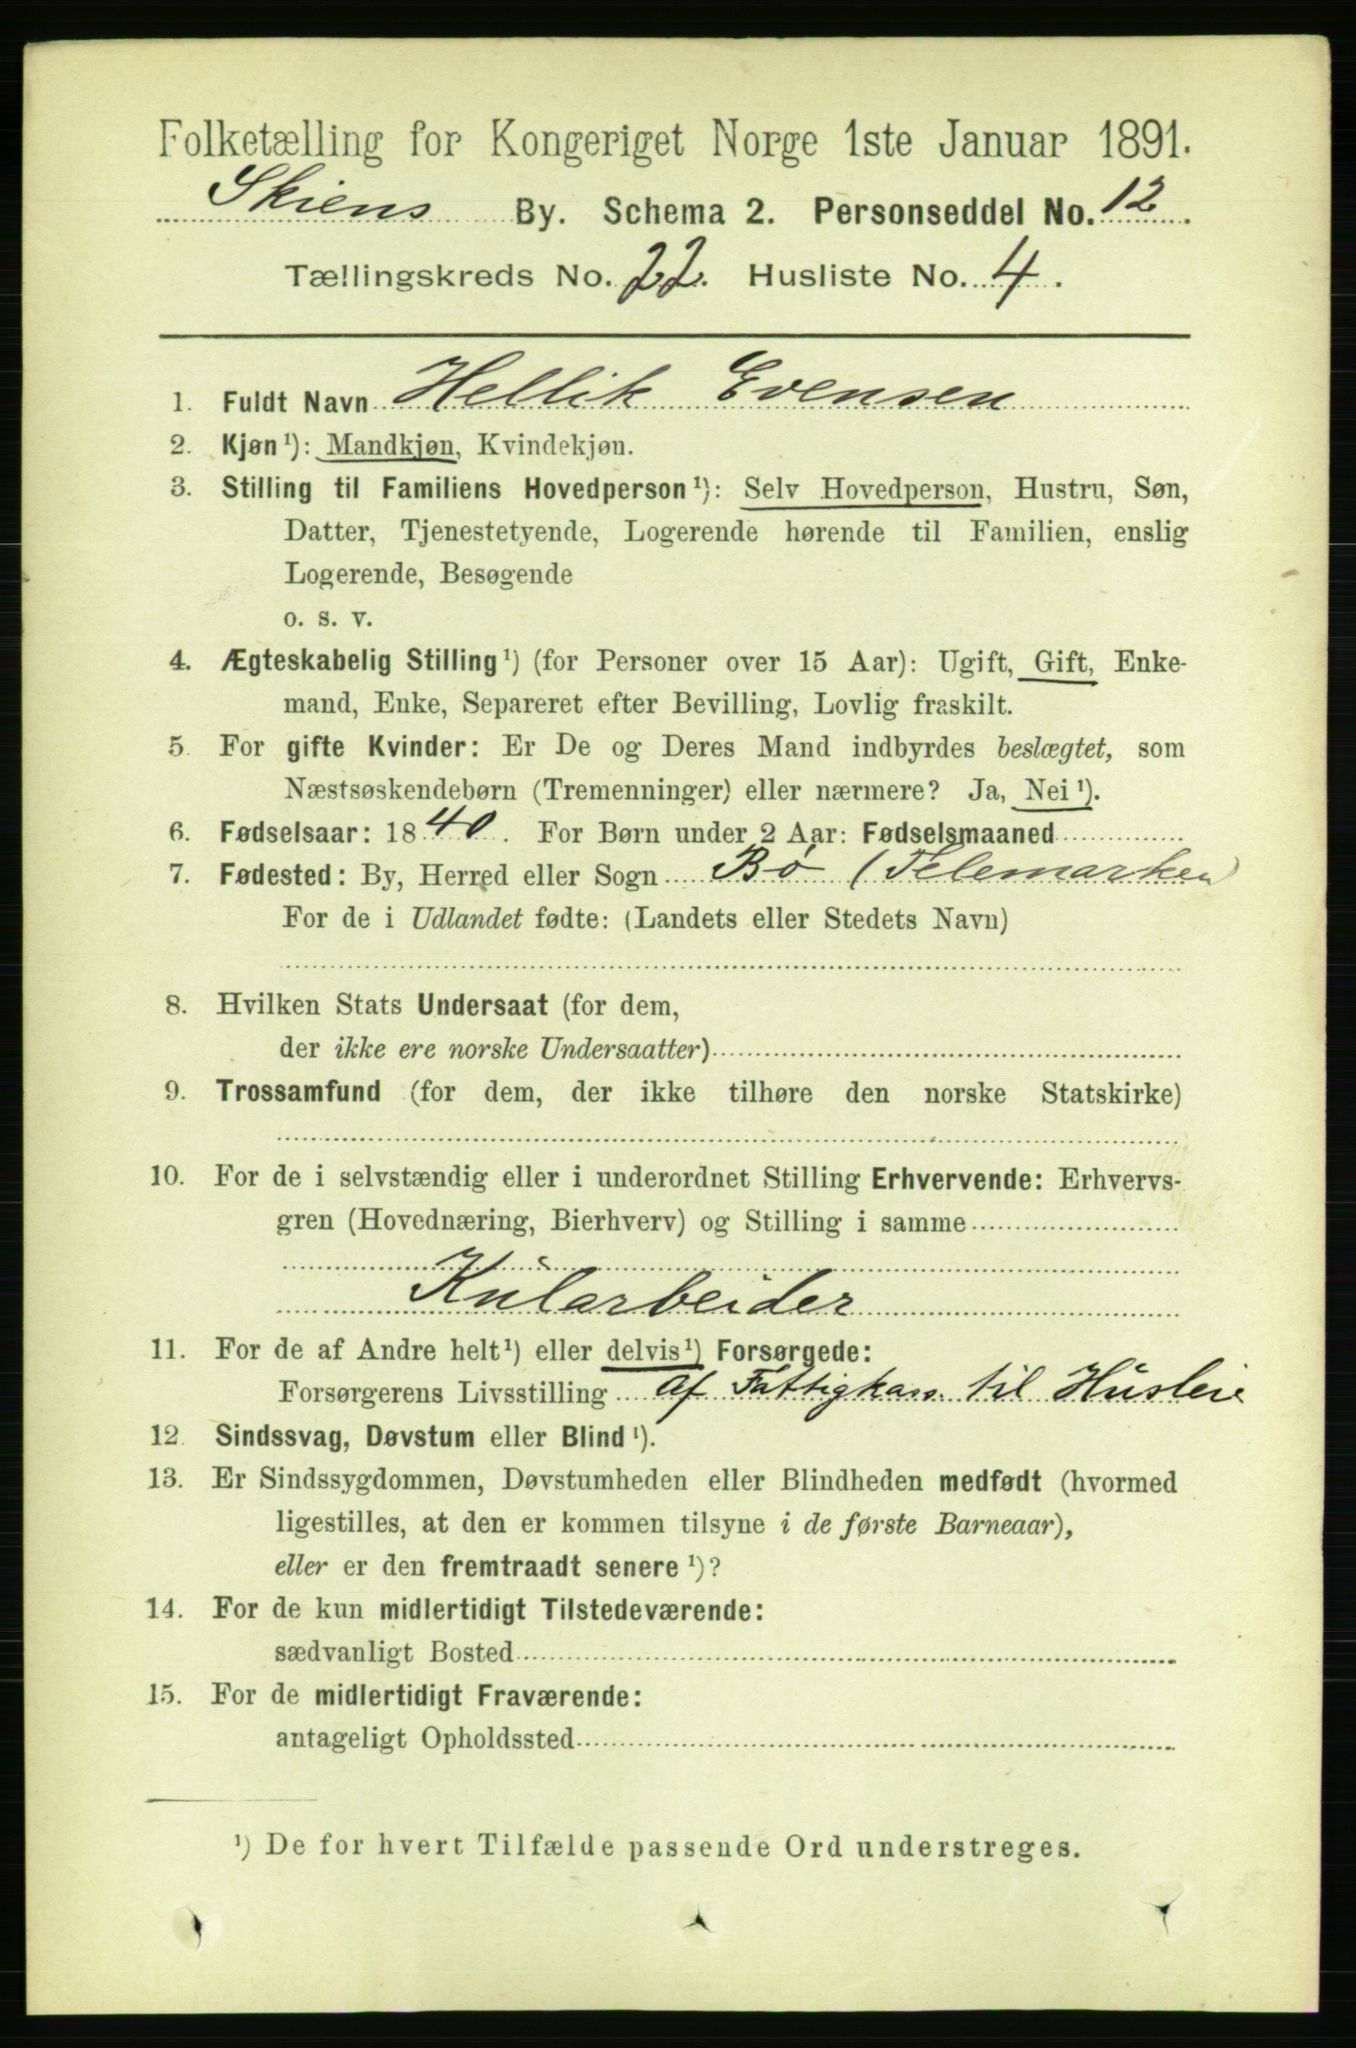 Folketælling for Kongeriget Norge 1ste Januar 1891.
Skiens By. Schema 2. Personseddel No. 12.
Tællingskreds No. 22. Husliste No. 4.
1. Fuldt Navn Hellik Evensen
2. Kjøn¹): Mandkjøn, Kvindekjøn.
3. Stilling til Familiens Hovedperson¹): Selv Hovedperson, Hustru, Søn,
Datter, Tjenestetyende, Logerende hørende til Familien, enslig
Logerende, Besøgende
o. s. v.
4. Ægteskabelig Stilling¹) (for Personer over 15 Aar): Ugift, Gift, Enke-
mand, Enke, Separeret efter Bevilling, Lovlig fraskilt.
5. For gifte Kvinder: Er De og Deres Mand indbyrdes beslægtet, som
Næstsøskendebørn (Tremenninger) eller nærmere? Ja, Nei¹).
6. Fødselsaar: 1840. For Børn under 2 Aar: Fødselsmaaned
7. Fødested: By, Herred eller Sogn Bø (Telemarken)
For de i Udlandet fødte: (Landets eller Stedets Navn)
8. Hvilken Stats Undersaat (for dem,
der ikke ere norske Undersaatter)
9. Trossamfund (for dem, der ikke tilhøre den norske Statskirke)
10. For de i selvstændig eller i underordnet Stilling Erhvervende: Erhvervs-
gren (Hovednæring, Bierhverv) og Stilling i samme
Kularbeider
11. For de af Andre helt¹) eller delvis¹) Forsørgede:
Forsørgerens Livsstilling af Fattigkass. til Husleie
12. Sindssvag, Døvstum eller Blind¹).
13. Er Sindssygdommen, Døvstumheden eller Blindheden medfødt (hvormed
ligestilles, at den er kommen tilsyne i de første Barneaar),
eller er den fremtraadt senere¹)?
14. For de kun midlertidigt Tilstedeværende:
sædvanligt Bosted
15. For de midlertidigt Fraværende:
antageligt Opholdssted
¹) De for hvert Tilfælde passende Ord understreges.